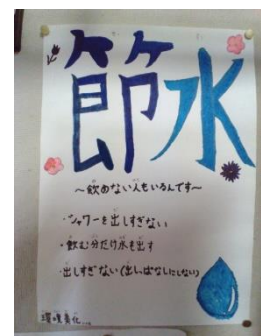 節水
～飲めない人もいるんです～
・シャワーを出しすぎない
・飲む分だけ水を出す
・出しすぎない(出しっぱなしにしない)
環境美化